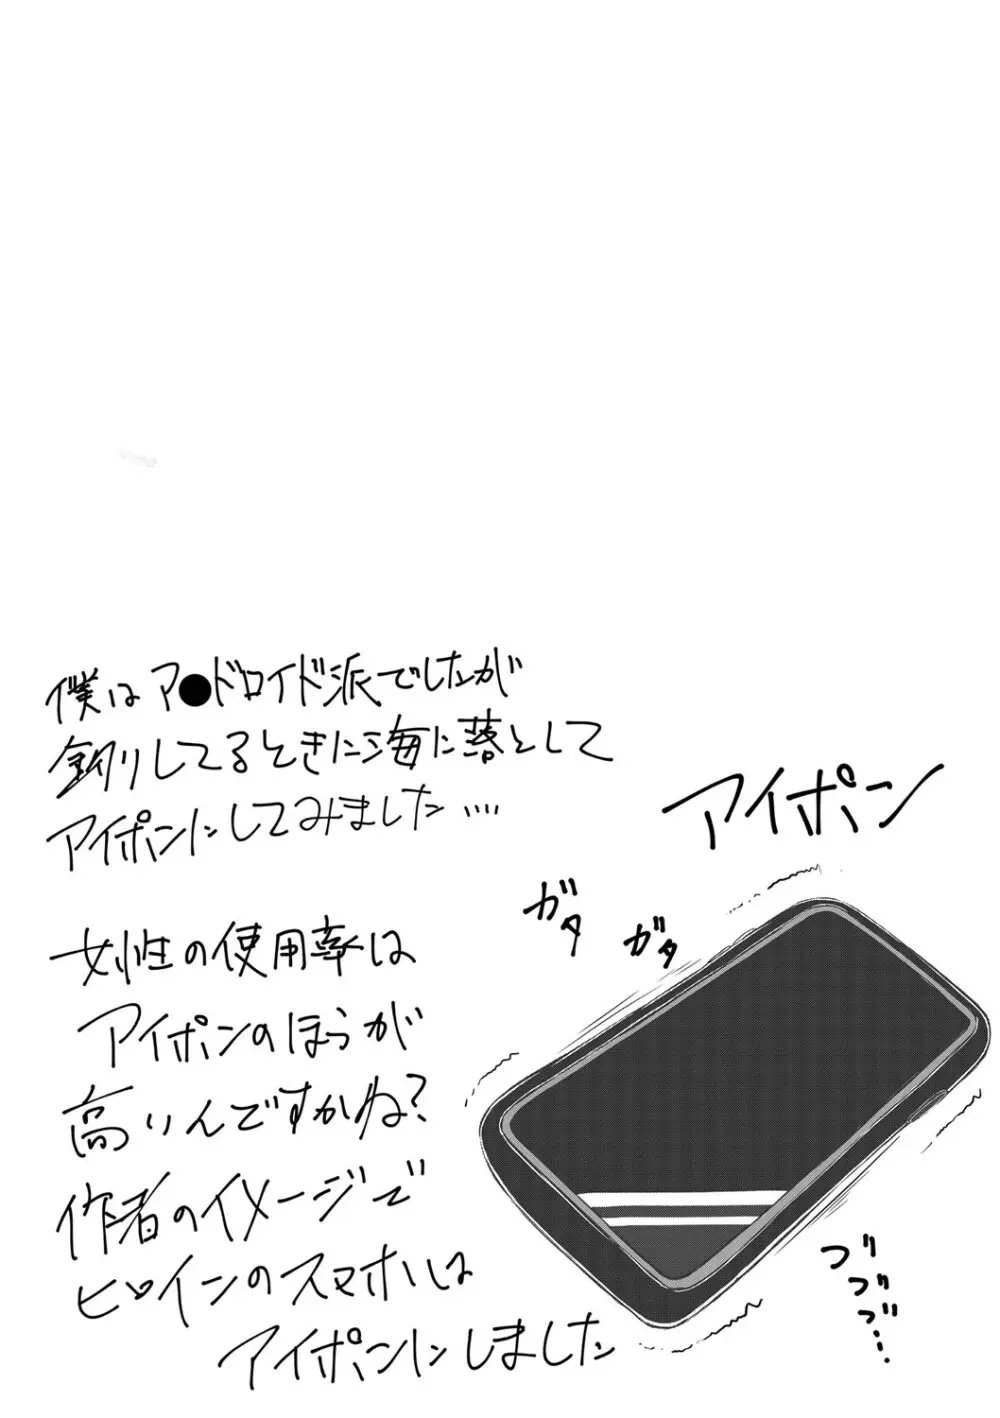 僕はア●ドロイド派でしたが
釣りしてるときに海に落として
アイポンにしてみました....
アイポン
ガタ
ガタ
女性の使用率は
アイポンのほうが
高いんですかね?
作者のイメージで
ヒロインのスマホは
アイポンにしました
ブブブ...